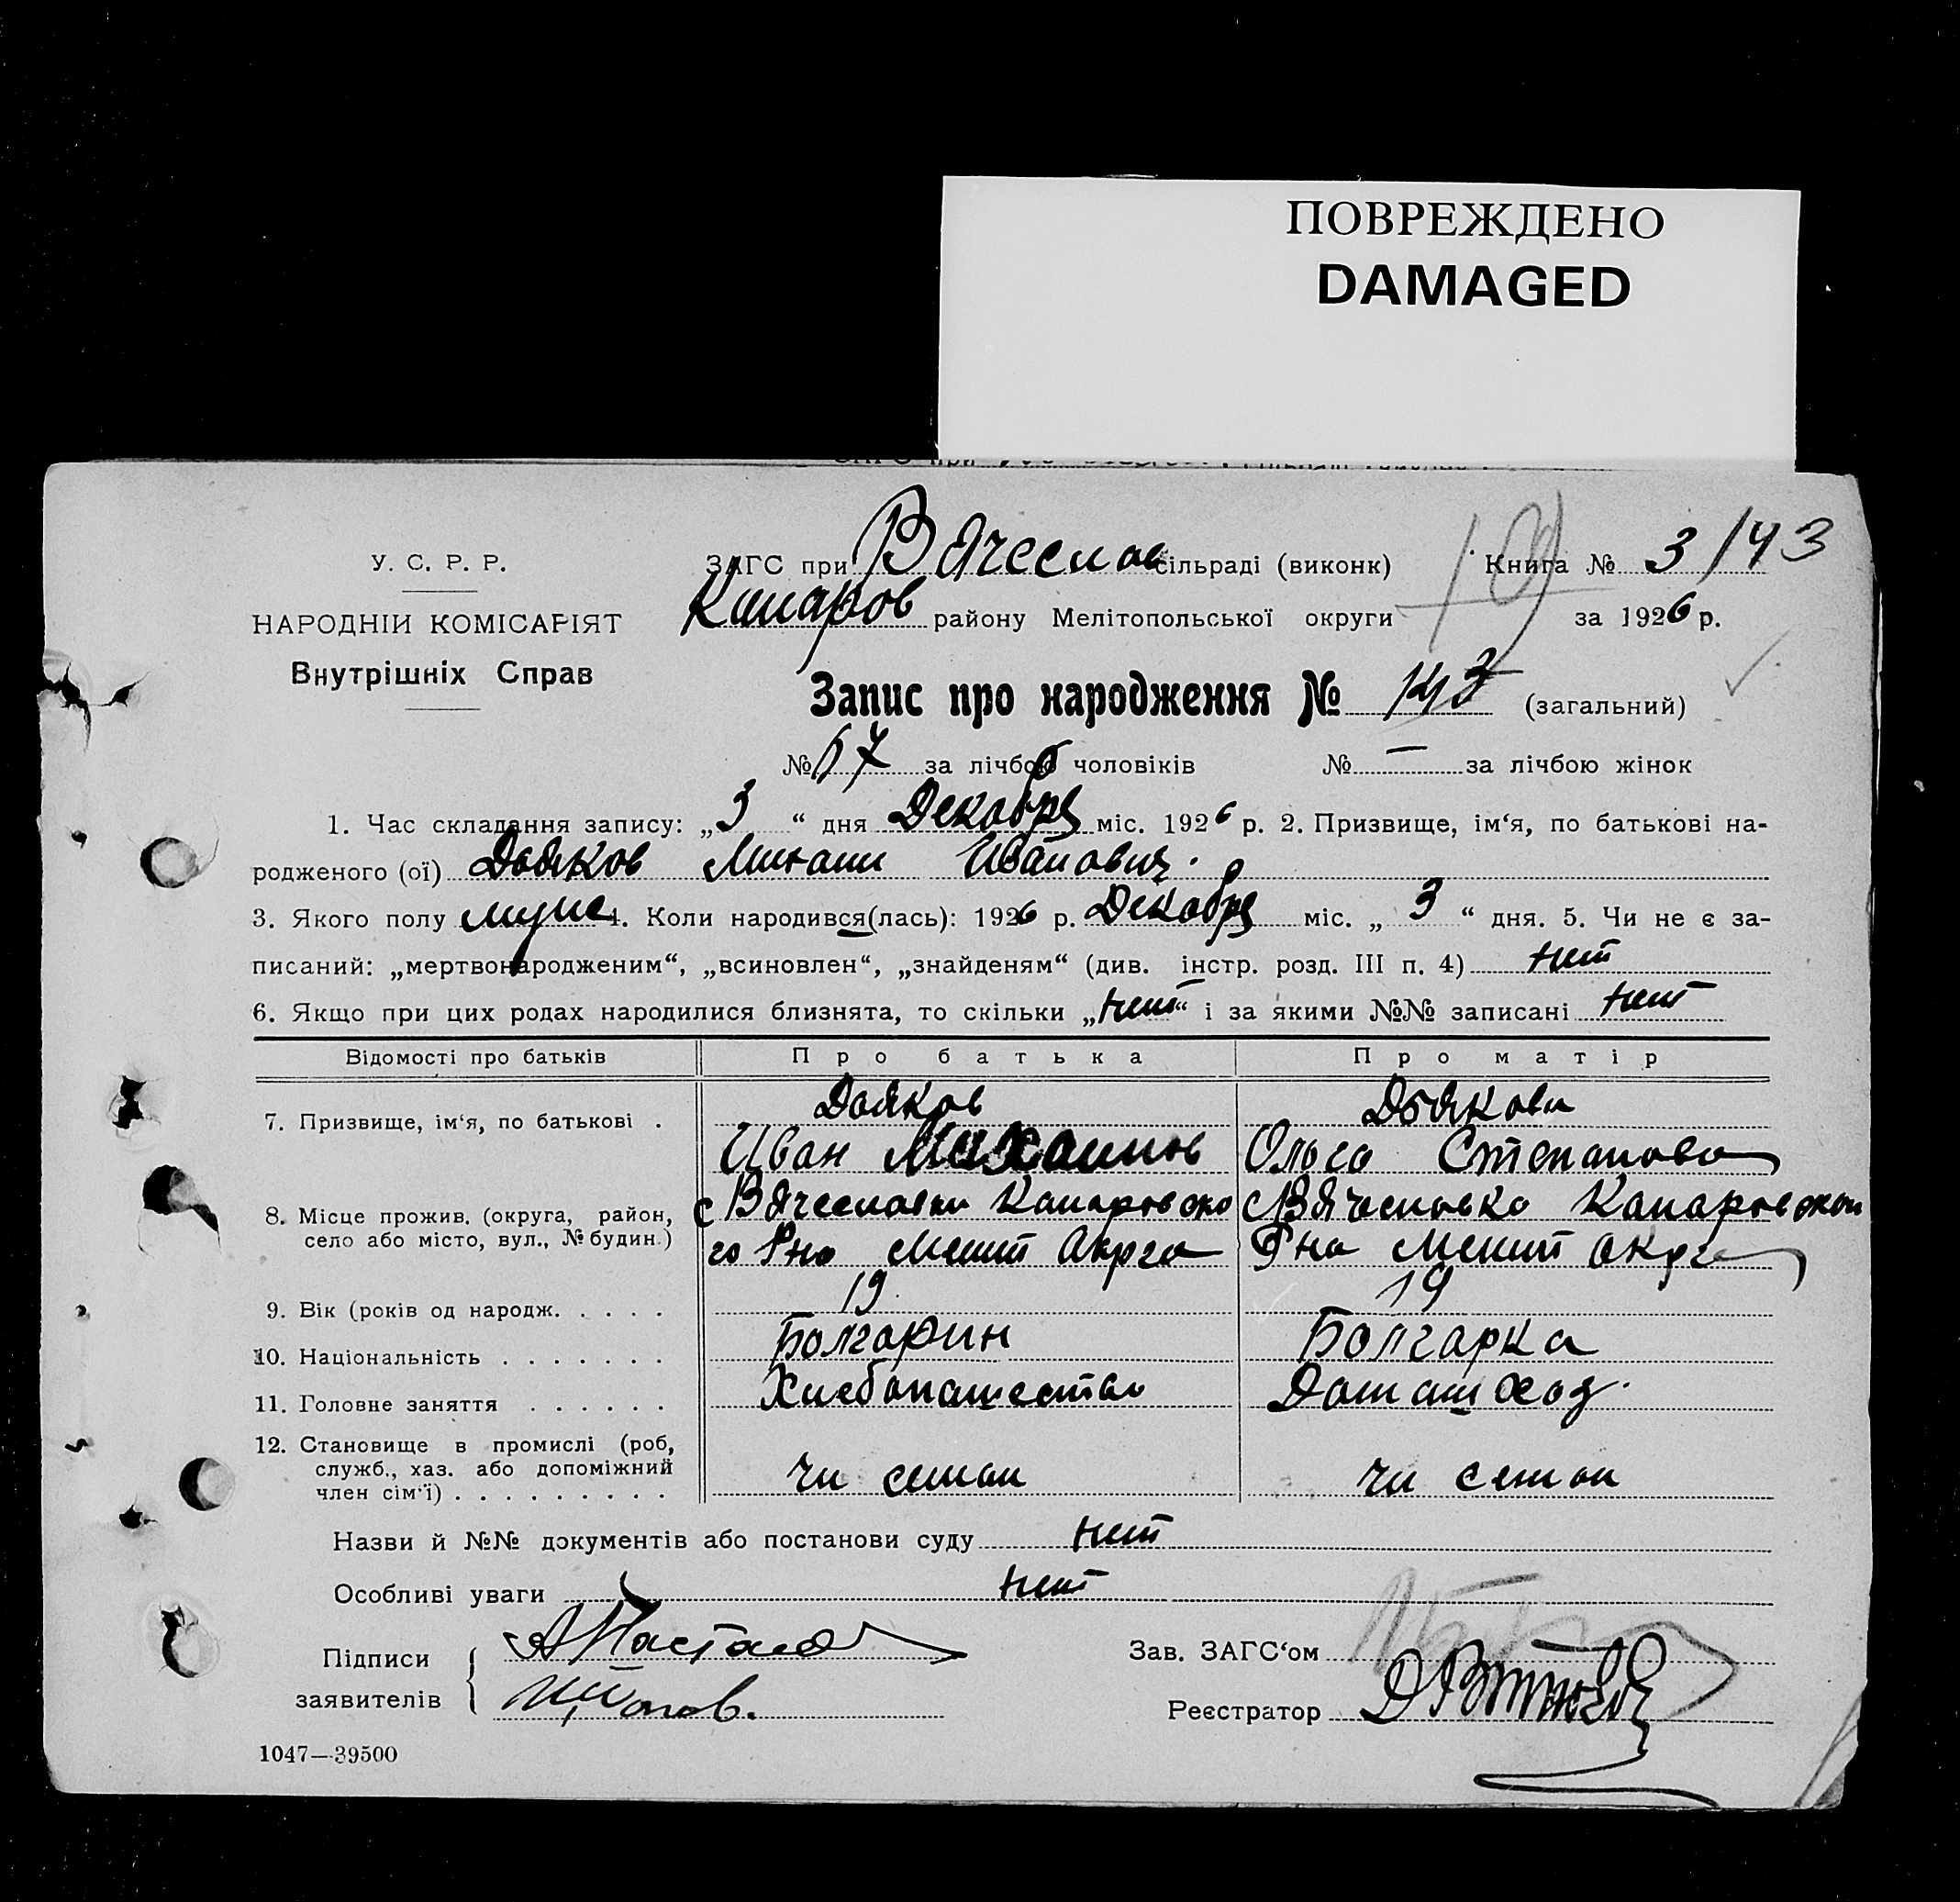 ПОВРЕЖДЕНО
DAMAGED
У. С. Р. Р.
НАРОДНІЙ КОМІСАРІЯТ
Внутрішніх Справ
ЗАГС при Вячеслов сільраді (виконк)
Книга № 3/143
района Мелітопольської округи
за 1926 р.
Запис про народження № 143 (загальний)
№ 67 за лічбою чоловіків № — за лічбою жінок
1. Час складання запису: „3“ дня Декабря міс. 1926 р. 2. Призвище, ім‘я, по батькові на-
родженого (ої) Дояков Михаил Иванович.
3. Якого полу муж 4. Коли народився(лась): 1926 р. Декабря міс. „3“ дня. 5. Чи не є за-
писаний: „мертвонародженим“, „всиновлен“, „знайденям“ (див. інстр. розд. III п. 4) нет
6. Якщо при цих родах народилися близнята, то скільки „нет“ і за якими №№ записані нет
Відомості про батьків Про батька Про матір
7. Призвище, ім‘я, по батькові . Дояков Доякова
Иван Михаилов Ольга Степанова
8. Місце прожив. (округа, район, с Вячеславки Св Вячеславка
село або місто, вул., № будин.) го Рна Мелит Окрга Рна Мелит Окрга
9. Вік (років од народж. . . . . 19 19
10. Національність . . . . . . . Болгарин Болгарка
11. Головне заняття . . . . . . Хлебопашество Домашхоз.
12. Становище в промислі (роб,
служб., хаз. або допоміжний чл семьи чл семьи
член сім‘ї) . . . . . . . . .
Назви й №№ документів або постанови суду нет
Особливі уваги нет
Підписи
заявителів
Зав. ЗАГС‘ом
Реєстратор
1047—39500